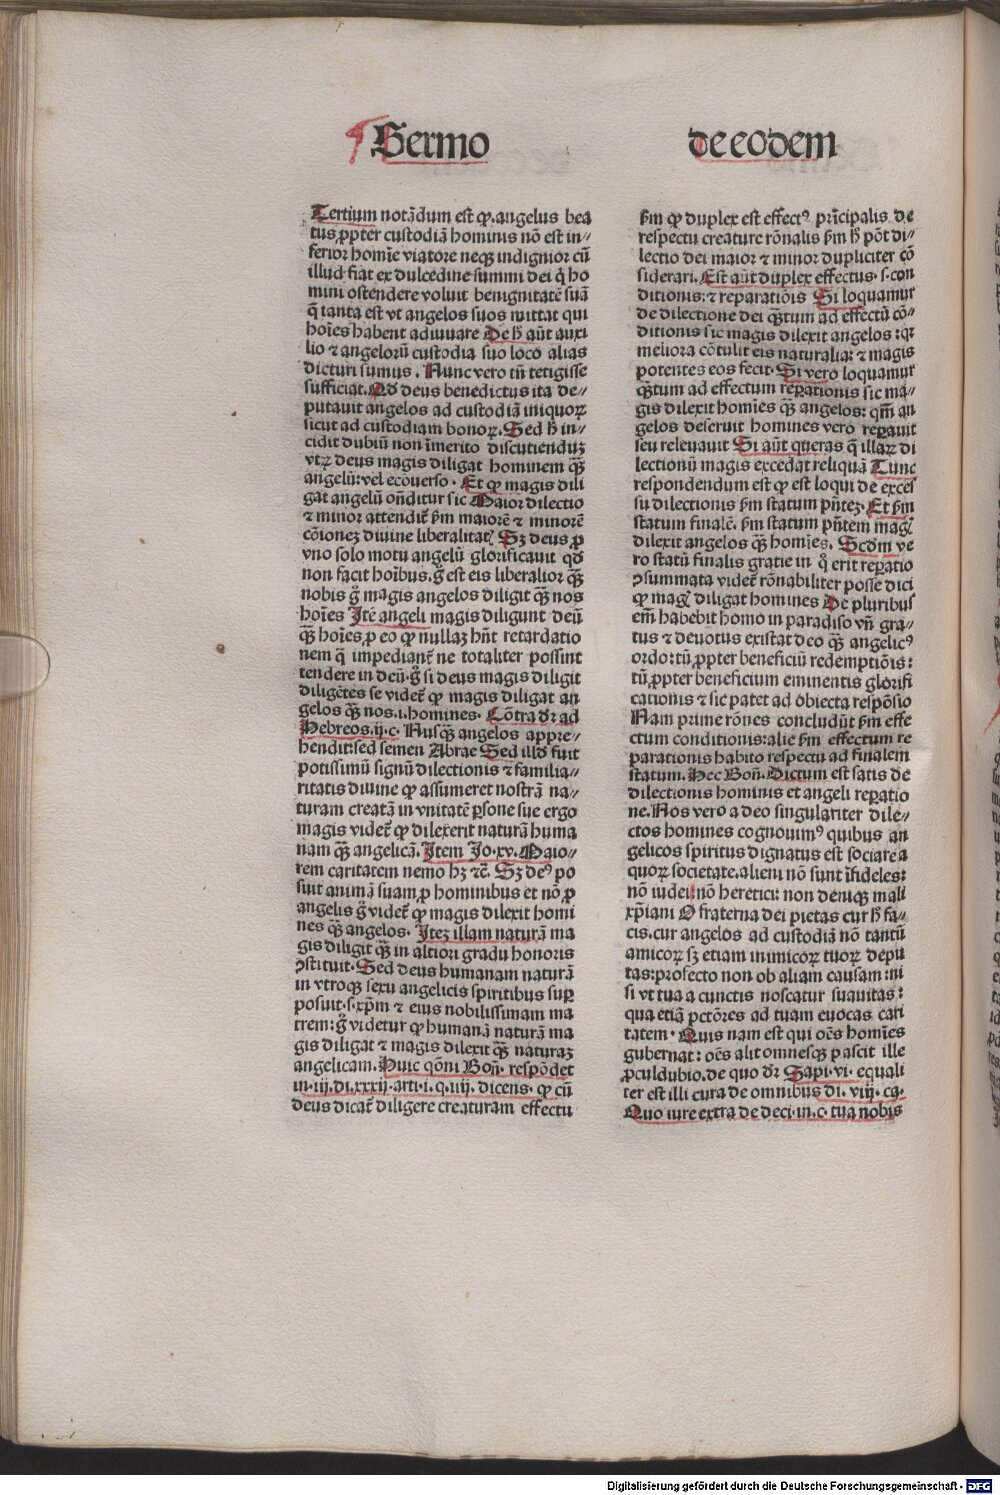 ¶ Sermo de eodem
Tertium notādum est ꝙ angelus bea
tus ꝓpter custodiā hominis nō est in⸗
ferior homīe viatore necꝫ indignior cū
illud fiat ex dulcedine summi dei q̇ ho
mini ostendere voluit benignitatē suā
q̄ tanta est vt angelos suos mittat qui
hoīes habent adiuuare De h̄ aūt auxi
lio ⁊ angelorū custodia suo loco alias
dicturi sumus. Nunc vero tm̄ tetigisse
sufficiat. Qd̓ deus benedictus ita de⸗
putauit angelos ad custodiā iniquoꝝ
sicut ad custodiam bonoꝝ. Sed h̄ in⸗
cidit dubiū non īmerito discutienduꝫ
vtꝝ deus magis diligat hominem q̄ꝫ
angelū: vel ecōuerso. Et ꝙ magis dili
gat angelū oñditur sic Maior dilectio
⁊ minor attendit̄ ẜm maiorē ⁊ minorē
cōionez diuine liberalitatꝭ Sꝫ deus ꝑ
vno solo motu angelū glorificauit qd̓
non facit hoībus. g̊ est eis liberalior q̄ꝫ
nobis g̊ magis angelos diligit q̄ꝫ nos
hoīes Itē angeli magis diligunt deū
q̄ꝫ hoīes ꝑ eo ꝙ nullaꝫ hn̄t retardatio
nem q̄ impediant̄ ne totaliter possint
tendere in deū. g̊ si deus magis diligit
diligētes se videt̄ ꝙ magis diligat an
gelos q̄ꝫ nos. i. homines. Cōtra dr̄ ad
Hebreos. ij. c. Nusq̄ꝫ angelos appre⸗
hendit: sed semen Abrae Sed illd̓ fuit
potissimū signū dilectionis ⁊ familia⸗
ritatis diuine ꝙ assumeret nostrā na⸗
turam creatā in vnitatē ꝑsone sue ergo
magis videt̄ ꝙ dilexerit naturā huma
nam q̄ꝫ angelicā. Item Jo. xv. Maio⸗
rem caritatem nemo hꝫ ⁊c̄. Sꝫ deꝰ po
suit animā suam ꝓ hominibus et nō ꝓ
angelis g̊ videt̄ ꝙ magis dilexit homi
nes q̄ꝫ angelos. Iteꝫ illam naturā ma
gis diligit q̄ꝫ in altiori gradu honoris
ꝯstituit. Sed deus humanam naturā
in vtroqꝫ sexu angelicis spiritibus suꝑ
posuit. s. xp̄m ⁊ eius nobilissimam ma
trem: g̊ videtur ꝙ humanā naturā ma
gis diligat ⁊ magis dilexit q̄ꝫ naturaꝫ
angelicam. Huic q̄oni Boñ. respōdet
in. iij. di. xxxij. arti. i. q. iiij. dicens. ꝙ cū
deus dicat̄ diligere creaturam effectu
ẜm ꝙ duplex est effectꝰ prīcipalis de
respectu creature rōnalis ẜm h̄ pōt di⸗
lectio dei maior ⁊ minor dupliciter cō
siderari. Est aūt duplex effectus. s. con
ditionis: ⁊ reparatiōis Si loquamur
de dilectione dei q̄ꝫtum ad effectū cō⸗
ditionis sic magis dilexit angelos: qꝛ
meliora cōtulit eis naturalia: ⁊ magis
potentes eos fecit. Si vero loquamur
q̄ꝫtum ad effectum reꝑationis sic ma⸗
gis dilexit homīes q̄ꝫ angelos: qm̄ an
gelos deseruit homines vero reꝑauit
seu releuauit Si aūt queras q̄ illaꝝ di
lectionū magis excedat reliquā Tunc
respondendum est ꝙ est loqui de exces
su dilectionis ẜm statum pn̄tez. Et ẜm
statum finalē. ẜm statum pn̄tem magꝭ
dilexit angelos q̄ꝫ homīes. Scd̓m ve
ro statū finalis gratie in q̊ erit reꝑatio
ꝯsummata videt̄ rōnabiliter posse dici
ꝙ magꝭ diligat homines De pluribus
em̄ habebit homo in paradiso vn̄ gra⸗
tus ⁊ deuotus existat deo q̄ꝫ angelicꝰ
ordo: tū ꝓpter beneficiū redemptiōis:
tū ꝓpter beneficium eminentis glorifi
cationis ⁊ sic patet ad obiecta respōsio
Nam prime rōnes concludūt ẜm effe
ctum conditionis: alie ẜm effectum re
parationis habito respectu ad finalem
statum. Hec Boñ. Dictum est satis de
dilectionis hominis et angeli reꝑatio
ne. Nos vero adeo singulariter dile⸗
ctos homines cognouimꝰ quibus an
gelicos spiritus dignatus est sociare a
quoꝝ societate. alieni nō sunt īfideles:
nō iudei: nō heretici: non deniqꝫ mali
xp̄iani O fraterna dei pietas cur h̄ fa⸗
cis. cur angelos ad custodiā nō tantū
amicoꝝ sꝫ etiam inimicoꝝ tuoꝝ depu
tas: profecto non ob aliam causam: ni
si vt tua a cunctis noscatur suauitas:
qua etiā pctōres ad tuam euocas cari
tatem. Quis nam est qui oēs homīes
gubernat: oēs alit omnesqꝫ pascit ille
ꝓculdubio. de quo dr̄ Sapi. vi. equali
ter est illi cura de omnibus di. viij. ca.
Quo iure extra de deci. in. c. tua nobis
Digitalisierung gefördert durch die Deutsche Forschungsgemeinschaft - DFG